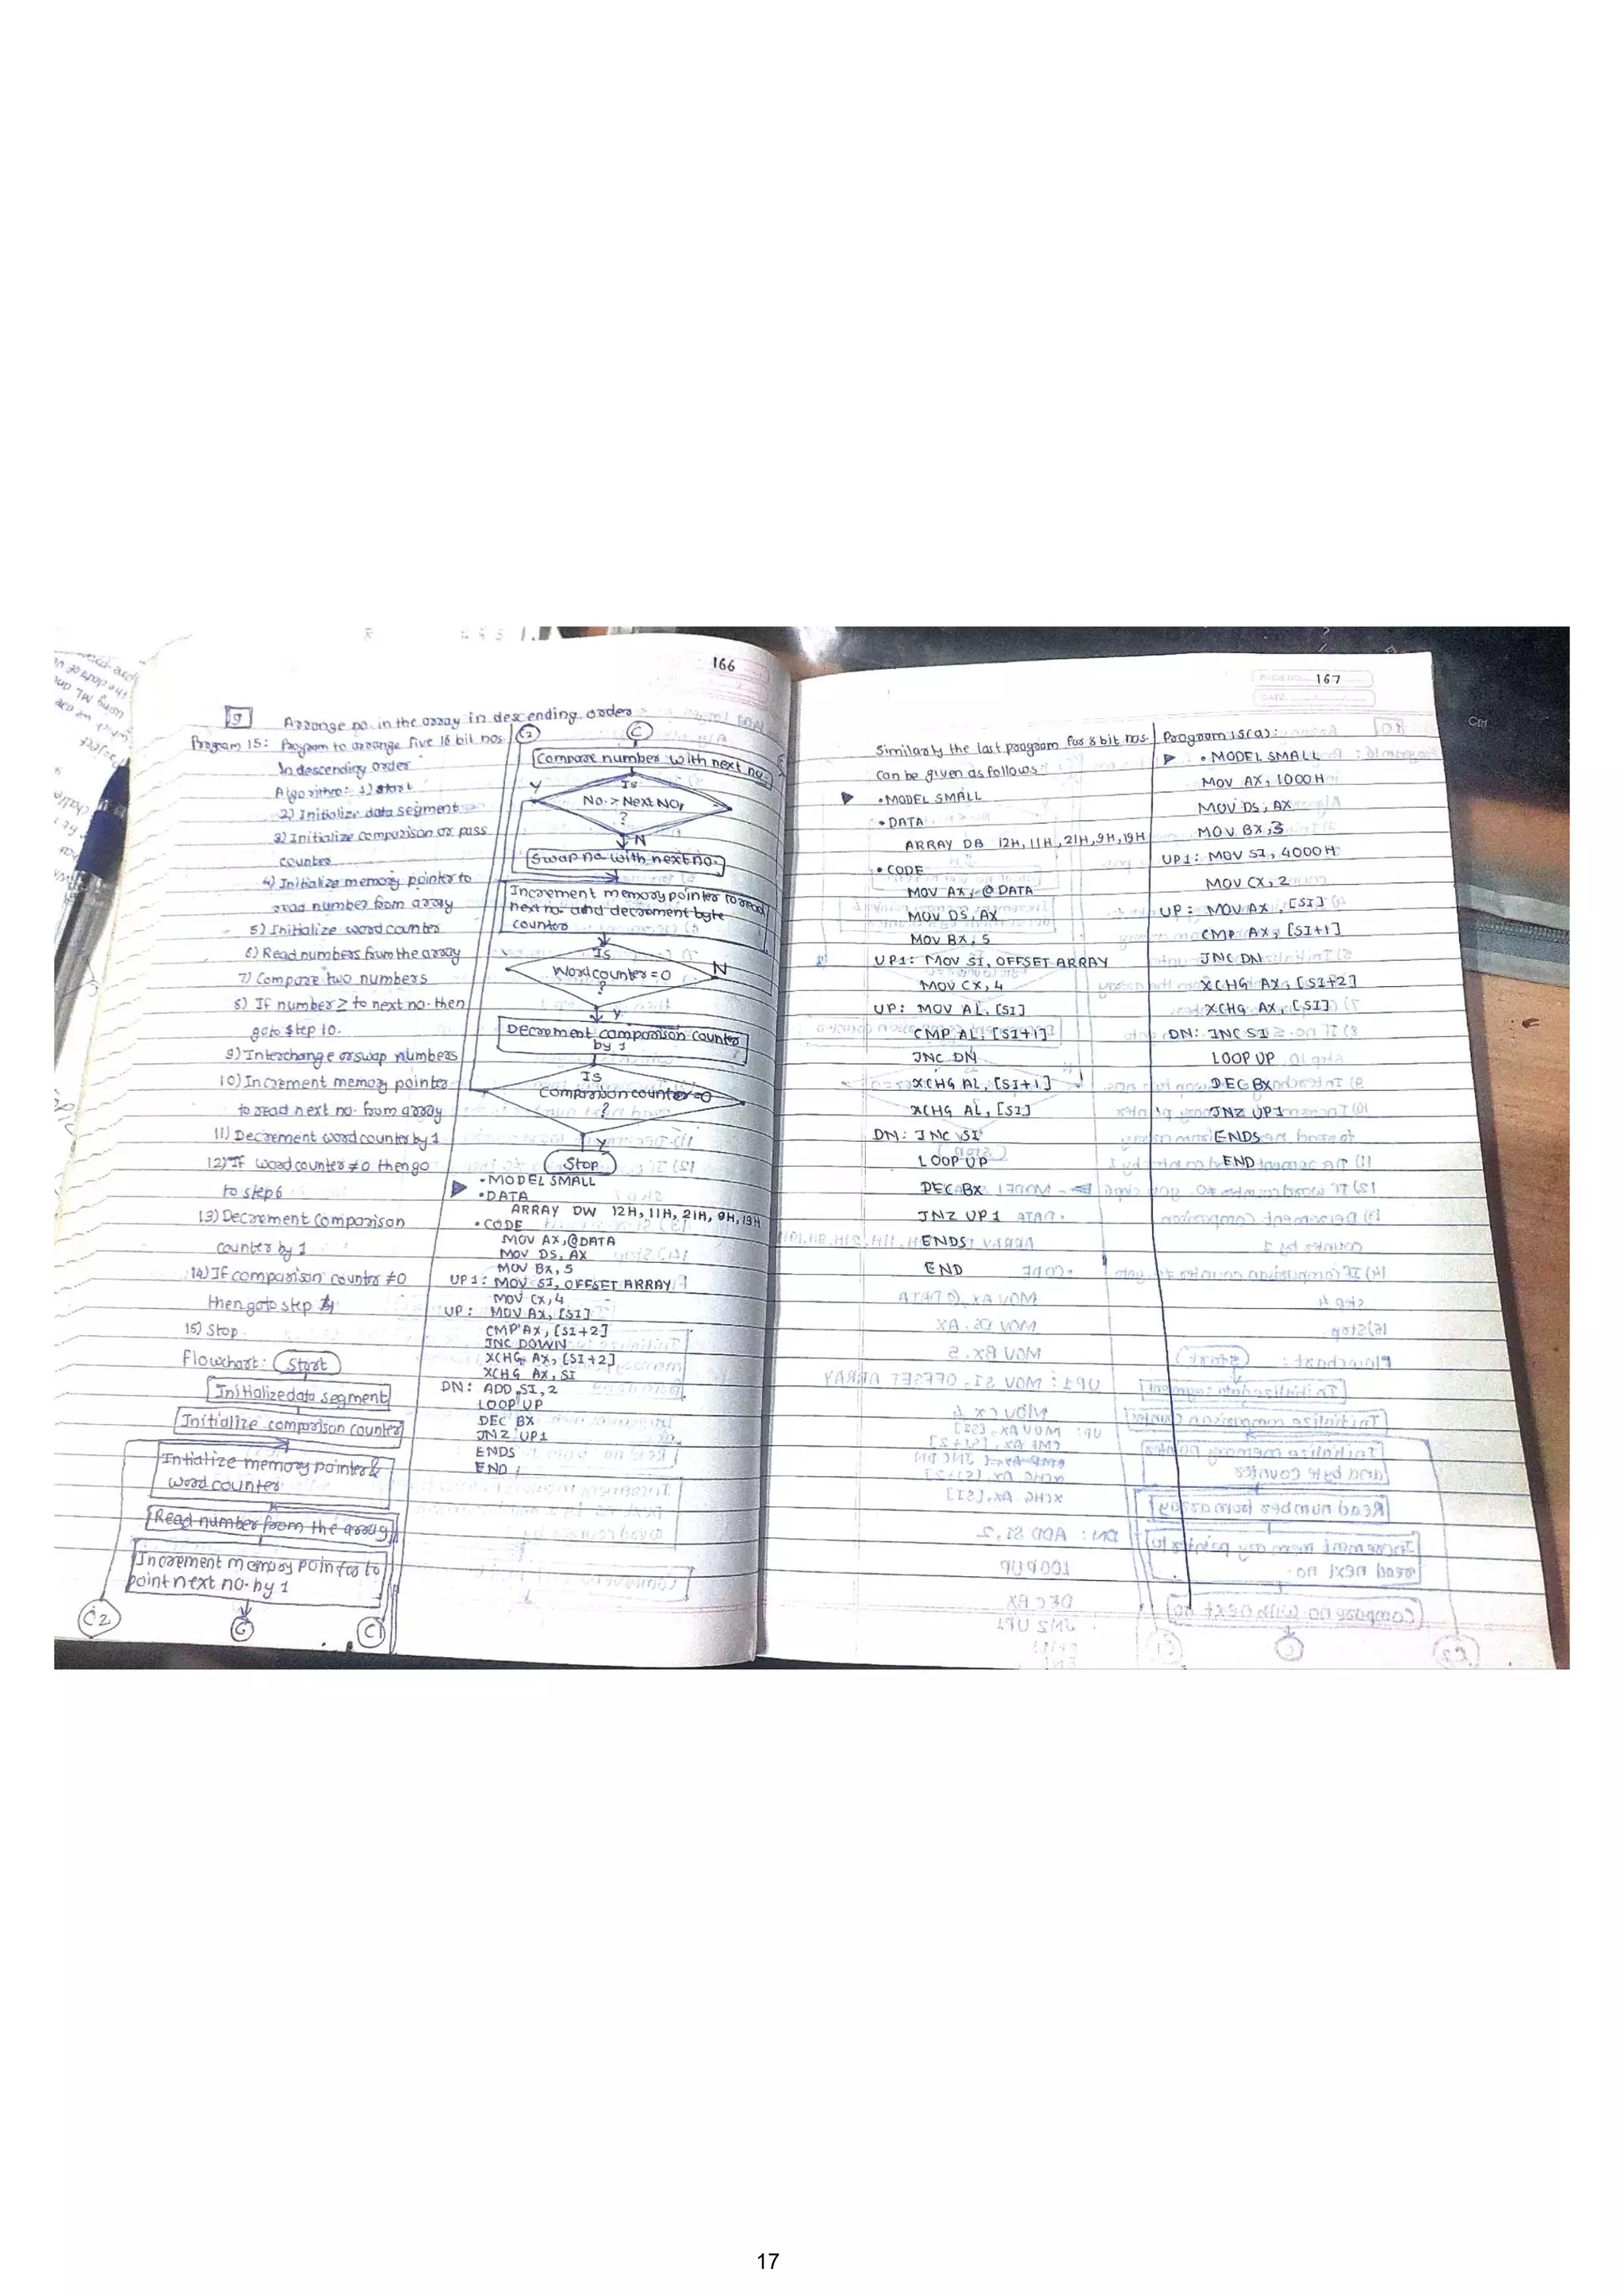 166
9 Arrange no. in the array in descending order
Program 15: Program to arrange five 16 bit nos.
In descending order
Algorithm: 1) start
2) Initialize data segment
3) Initialize comparison or pass
counter
4) Initialize memory pointer to
read number from array
5) Initialize word counter
6) Read numbers from the array
7) Compare two numbers
8) If number ≥ to next no. then
goto step 10.
9) Interchange or swap numbers
10) Increment memory pointer
to read next no. from array
11) Decrement word counter by 1
12) If word counter ≠ 0 then go
to step 6
13) Decrement Comparison
counter by 1
14) If comparison counter ≠ 0
then goto step 4
15) Stop
Flowchart: Start
Initialize data segment
Initialize comparison counter
Intialize memory pointer &
word counter
Read number from the array
Increment memory pointer to
point next no. by 1
C2
C
C1
C2
C
Compare number with next no.
Y
Is
No. > Next No,
?
N
Swap no with next no.
Increment memory pointer to read
next no. and decrement byte
counter
Is
Word counter = 0
?
N
Y
Decrement comparison counter
by 1
Is
Comparison counter = 0
?
Y
Stop
.MODEL SMALL
.DATA
ARRAY DW 12H, 11H, 21H, 9H, 19H
.CODE
MOV AX,@DATA
MOV DS, AX
MOV BX, 5
UP1: MOV SI, OFFSET ARRAY
MOV CX, 4
UP: MOV AX, [SI]
CMP AX, [SI+2]
JNC DOWN
XCHG AX, [SI+2]
XCHG AX, SI
DN: ADD SI, 2
LOOP UP
DEC BX
JNZ UP1
ENDS
END
PAGE NO. 167
DATE
Similarly the last program for 8 bit nos.
can be given as follows
.MODEL SMALL
.DATA
ARRAY DB 12H, 11H, 21H, 9H, 19H
.CODE
MOV AX, @DATA
MOV DS, AX
MOV BX, 5
UP1: MOV SI, OFFSET ARRAY
MOV CX, 4
UP: MOV AL, [SI]
CMP AL, [SI+1]
JNC DN
XCHG AL, [SI+1]
XCHG AL, [SI]
DN: INC SI
LOOP UP
DEC BX
JNZ UP1
ENDS
END
Program 15(a):
.MODEL SMALL
MOV AX, 1000H
MOV DS, AX
MOV BX, 3
UP1: MOV SI, 4000H
MOV CX, 2
UP: MOV AX, [SI]
CMP AX, [SI+1]
JNC DN
XCHG AX, [SI+2]
XCHG AX, [SI]
DN: INC SI
LOOP UP
DEC BX
JNZ UP1
ENDS
END
17